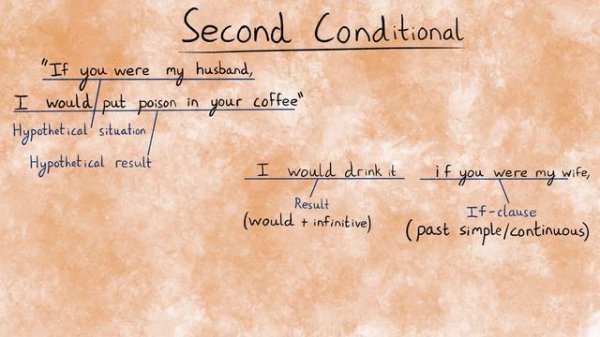 Second Conditional
"If you were my husband,
I would put poison in your coffee"
Hypothetical situation
Hypothetical result
I would drink it if you were my wife,
Result If-clause
(would + infinitive) (past simple/continuous)